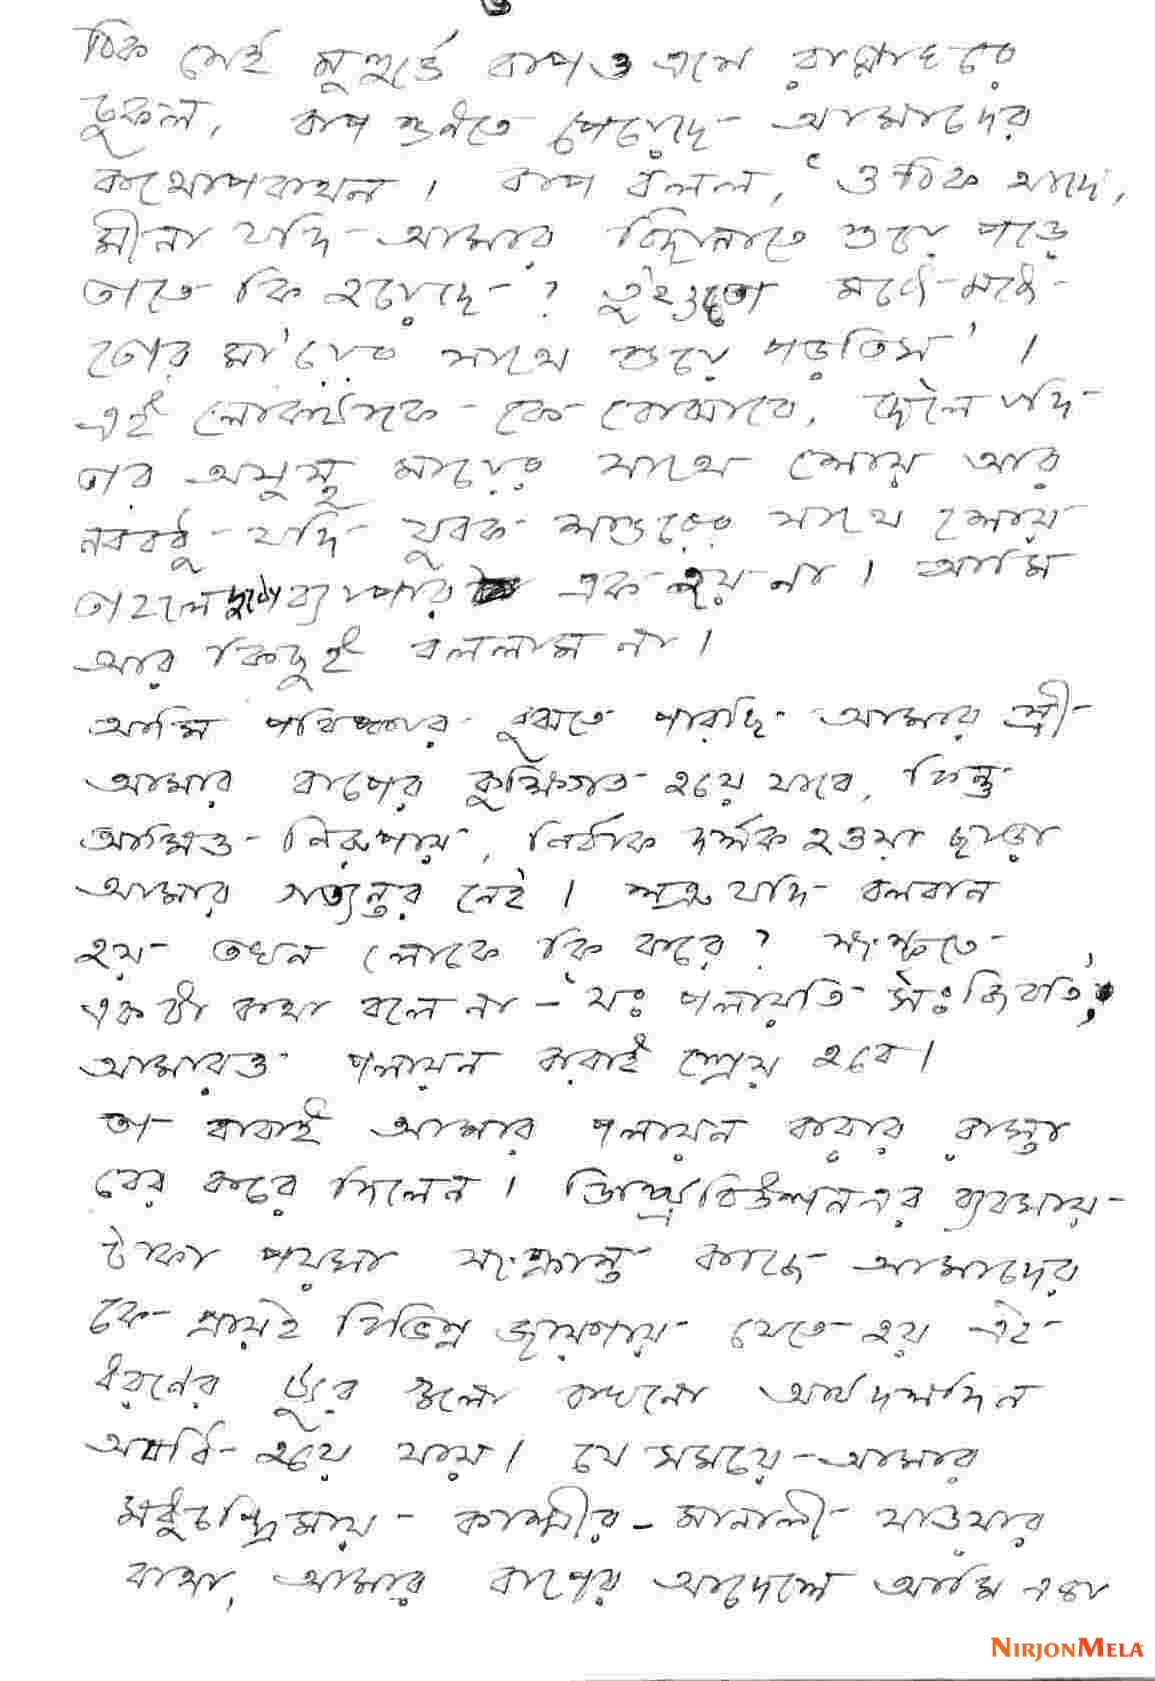 ঠিক সেই মুহুর্তে বাপও এসে রান্নাঘরে
ঢুকল, বাপ শুনতে পেয়েছে আমাদের
কথোপকথন। বাপ বলল, ‘ও ঠিক আছে,
মীনা যদি আমার বিছানাতে শুয়ে পড়ে
তাতে কি হয়েছে? তুইওতো মধ্যে-মধ্যে
তোর মা'য়ের সাথে শুয়ে পড়তিস’।
এই লোকটাকে কে বোঝাবে, ছেলে যদি
তার অসুস্থ মায়ের সাথে শোয় আর
নববধু যদি যুবক শ্বশুরের সাথে শোয়
তাহলে দুটো ব্যাপার এক হয় না। আমি
আর কিছুই বললাম না।
আমি পরিষ্কার বুঝতে পারছি আমার স্ত্রী
আমার বাপের কুক্ষিগত হয়ে যাবে, কিন্তু
আমিও নিরুপায়, নির্বাক দর্শক হওয়া ছাড়া
আমার গত্যন্তর নেই। শত্রু যদি বলবান
হয় তখন লোকে কি করে? সংস্কৃতে
একটা কথা বলে না – ‘যঃ পলায়তি সঃ জিবতি’,
আমারও পলায়ন করাই শ্রেয় হবে।
তা বাবাই আমার পলায়ন করার রাস্তা
বের করে দিলেন। ডিস্ট্রিবিউশান এর ব্যবসায়
টাকা পয়সা সংক্রান্ত কাজে আমাদের
কে প্রায়ই বিভিন্ন জায়গায় যেতে হয় এই
ধরণের ট্যুর গুলো কখনো আট দশদিন
অবধি হয়ে যায়। যে সময়ে আমার
মধুচন্দ্রিমায় কাশ্মীর – মানালী যাওয়ার
কথা, আমার বাপের আদেশে আমি একা
NIRJONMELA